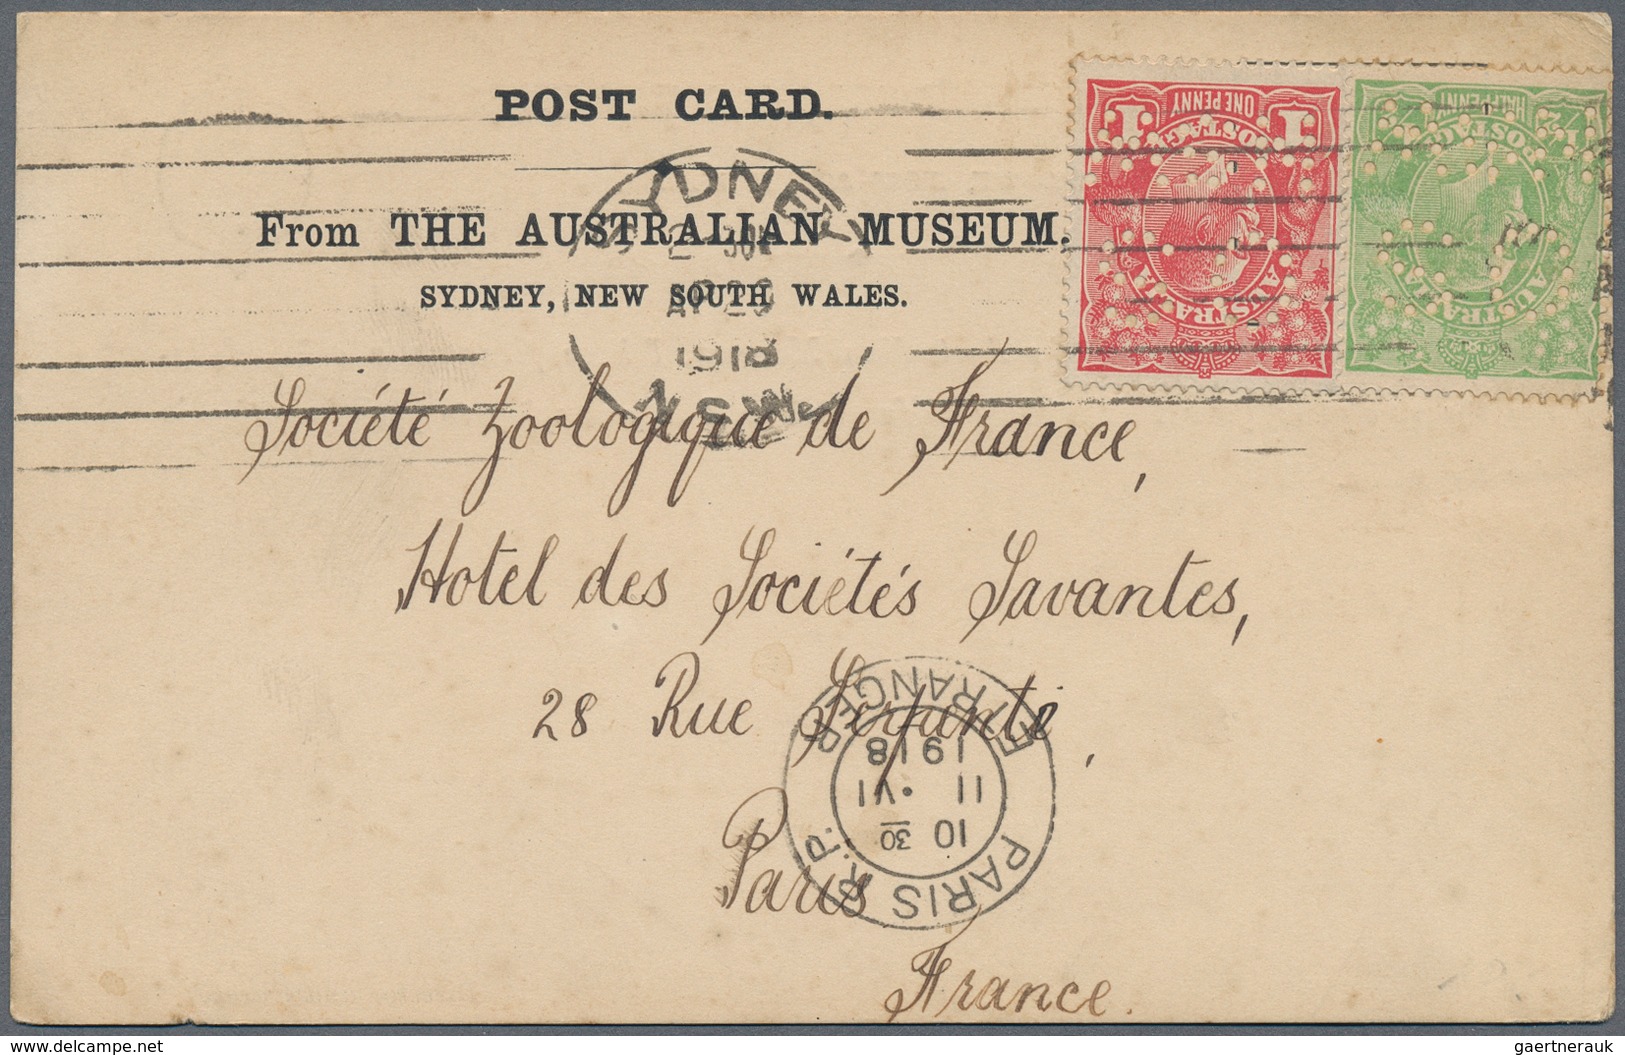 POST CARD.
From THE AUSTRALIAN MUSEUM.
SYDNEY, NEW SOUTH WALES.
SYDNEY
1918
N.S.W.
ONE PENNY
1 1
POSTAGE
AUSTRALIA
HALFPENNY
½ ½
POSTAGE
AUSTRALIA
Société Zoologique de France,
Hotel des Sociétés Savantes,
28 Rue Serpente,
Paris
France.
PARIS R.P.
ETRANGER
10 30
11 • VI
1918
gaertnerauk
delcampe.net